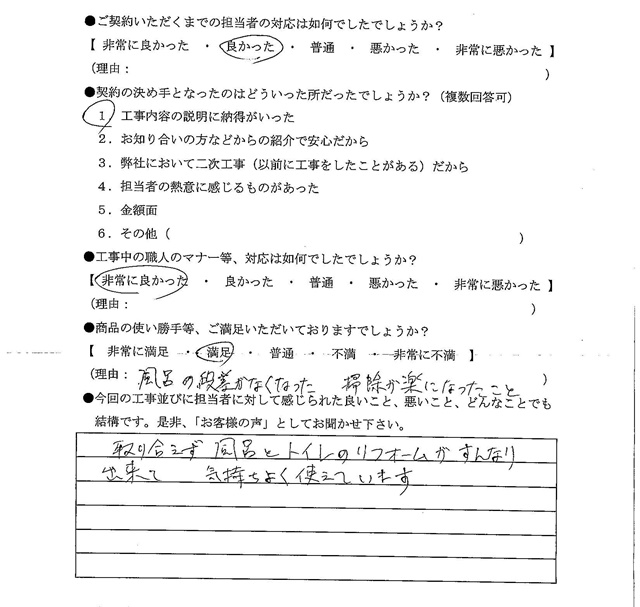 ●ご契約いただくまでの担当者の対応は如何でしたでしょうか？
【 非常に良かった ・ 良かった ・ 普通 ・ 悪かった ・ 非常に悪かった 】
（理由： ）
●契約の決め手となったのはどういった所だったでしょうか？（複数回答可）
1．工事内容の説明に納得がいった
2．お知り合いの方などからの紹介で安心だから
3．弊社において二次工事（以前に工事をしたことがある）だから
4．担当者の熱意に感じるものがあった
5．金額面
6．その他（ ）
●工事中の職人のマナー等、対応は如何でしたでしょうか？
【 非常に良かった ・ 良かった ・ 普通 ・ 悪かった ・ 非常に悪かった 】
（理由： ）
●商品の使い勝手等、ご満足いただいておりますでしょうか？
【 非常に満足 ・ 満足 ・ 普通 ・ 不満 ・ 非常に不満 】
（理由： 風呂の段差がなくなった 掃除が楽になったこと ）
●今回の工事並びに担当者に対して感じられた良いこと、悪いこと、どんなことでも
結構です。是非、「お客様の声」としてお聞かせ下さい。
取り合えず 風呂とトイレのリフォームがすんなり
出来て 気持ちよく使えています